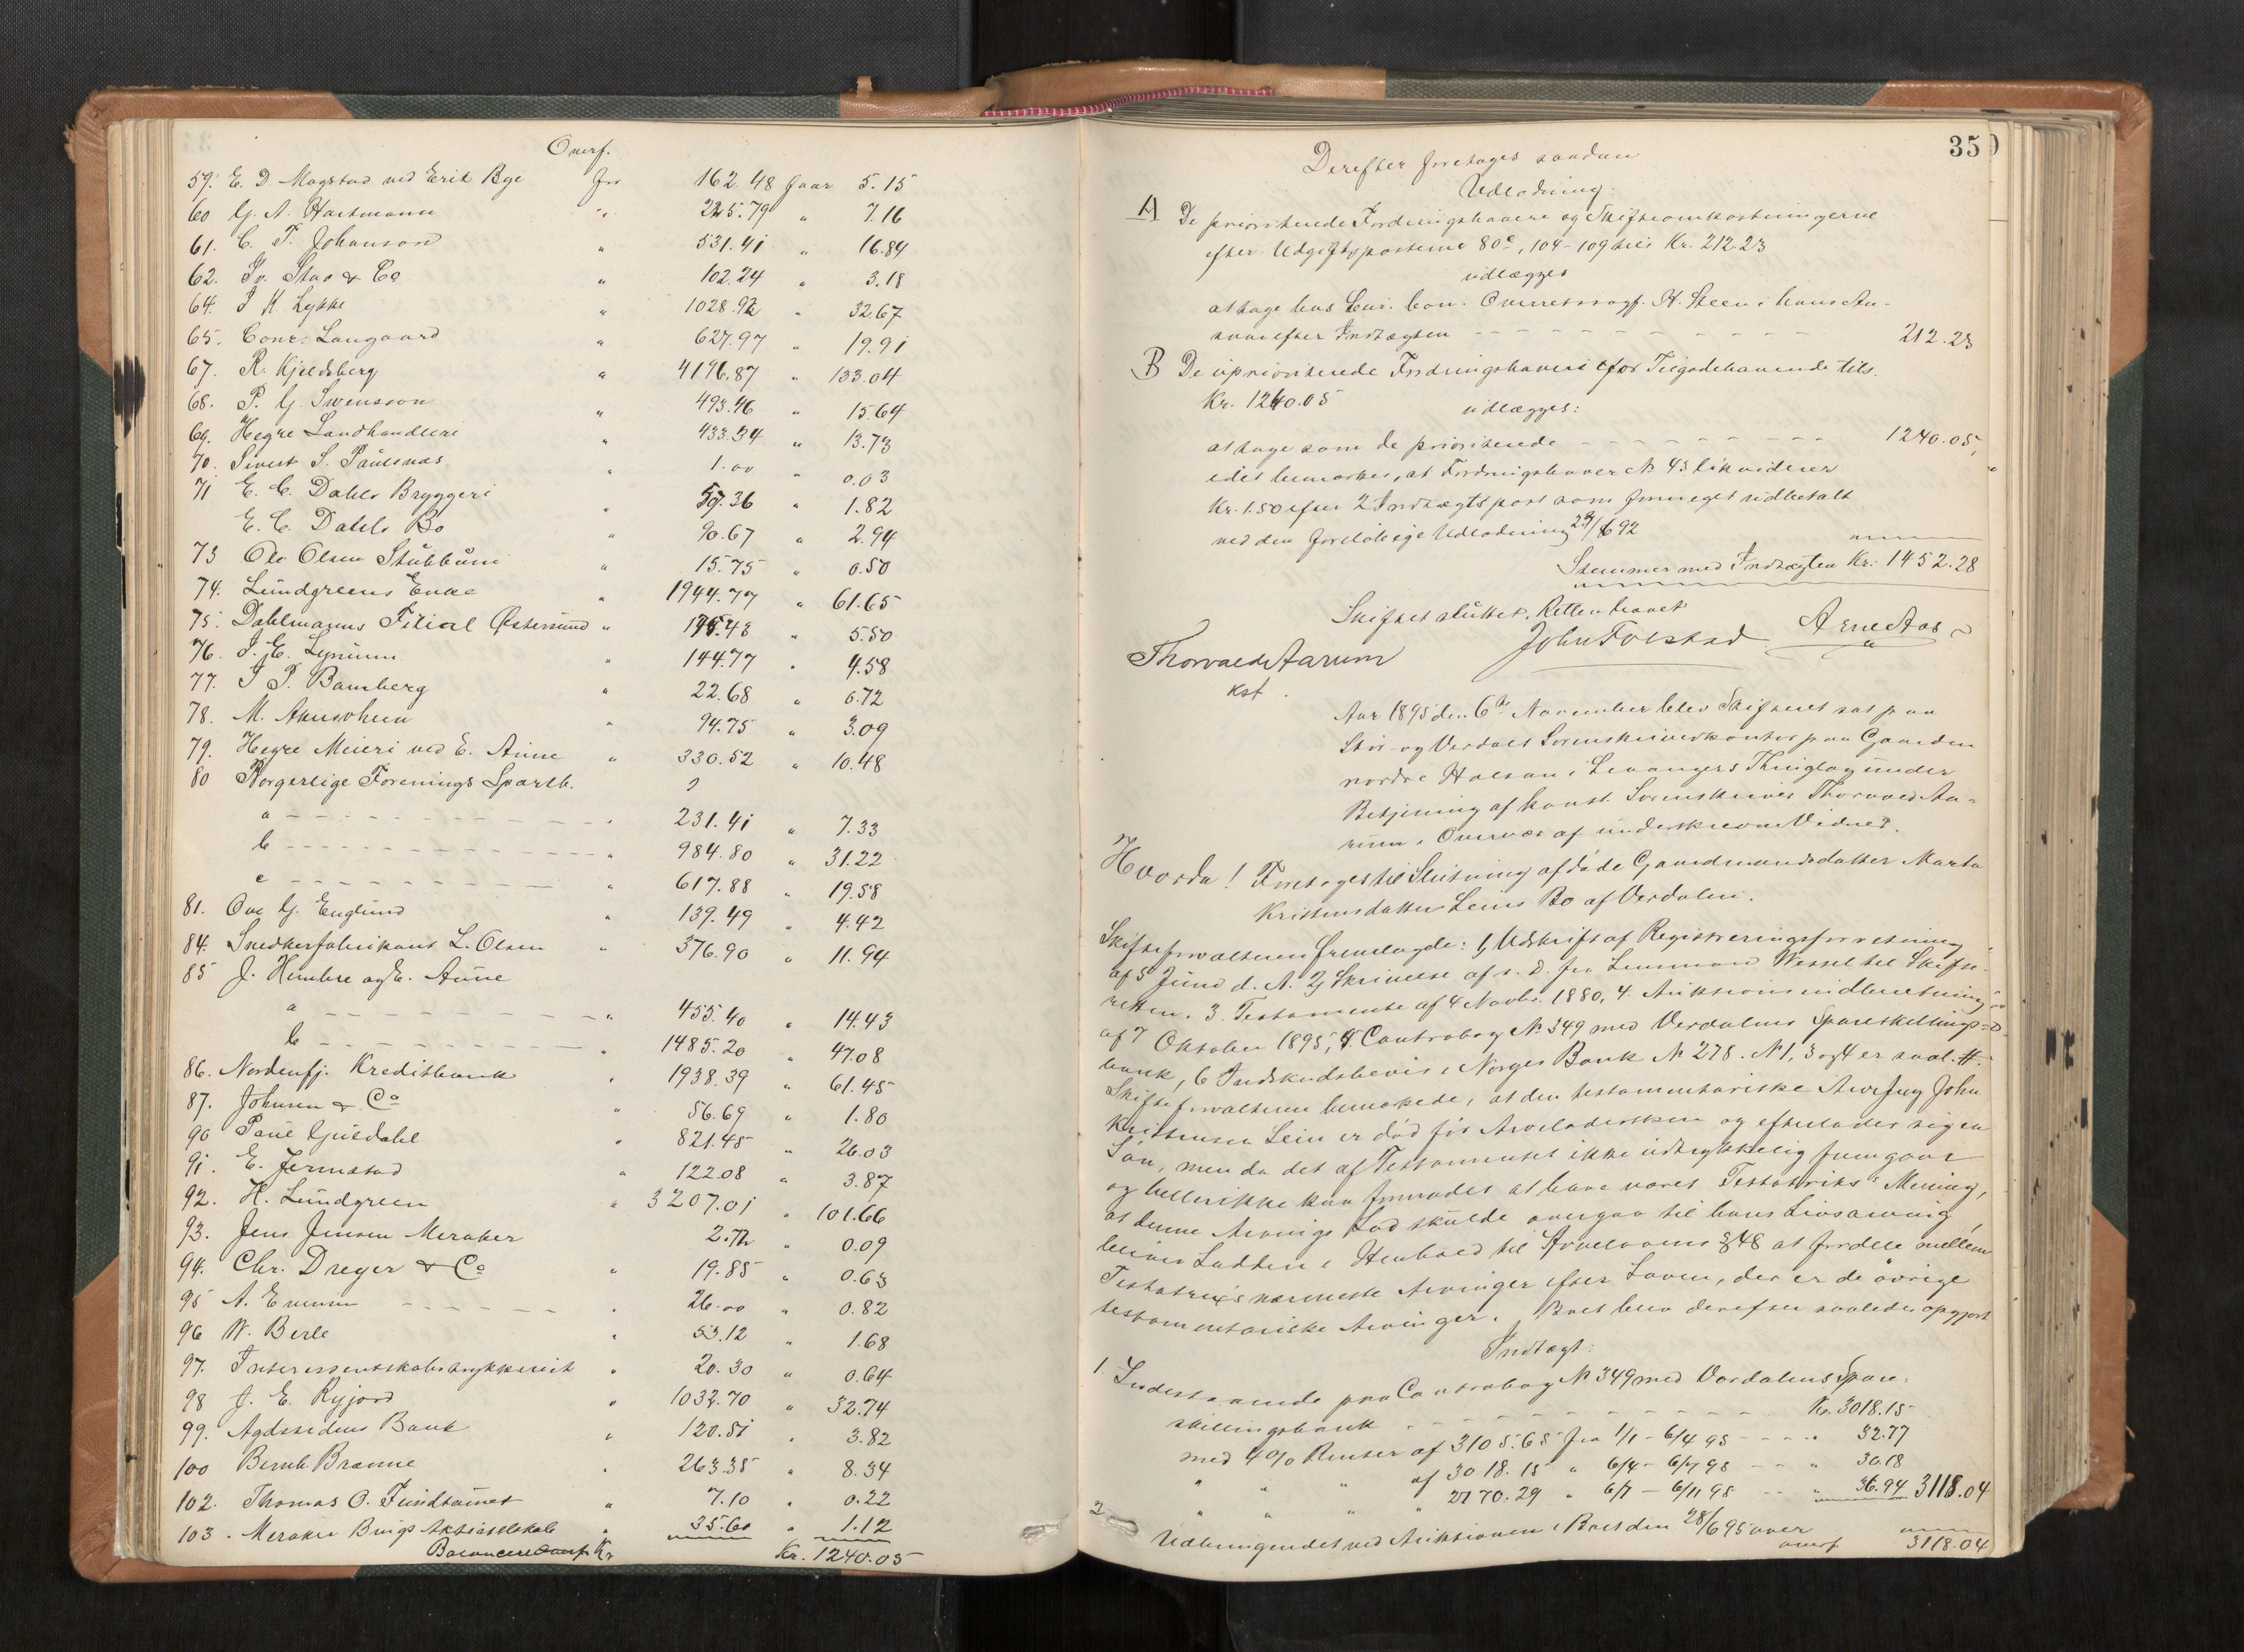 Overf.
59. E. D. Magstad ved Erik Bye for 162.48 faar 5.15
60 G. A. Hartmann " 225.79 " 7.16
61. C. P. Johanson " 531.41 " 16.84
62. Sv. Stav & Co " 102.24 " 3.18
64. I K Lykke " 1028.92 " 32.67
65. Conr. Langaard " 627.97 " 19.91
67. R. Kjeldsberg " 4196.87 " 133.04
68. P. G. Svensson " 493.46 " 15.64
69. Hegre Landhandleri " 433.34 " 13.73
70. Sivert S. Paulsnæs " 1.00 " 0.03
71 E. C. Dahls Bryggeri " 57.36 " 1.82
E. C. Dahls Bo " 90.67 " 2.94
73 Ole Olsen Stubbum " 15.75 " 0.50
74. Lundgreens Enke " 1944.77 " 61.65
75. Dahlmanns Filial Østersund " 175.43 " 5.50
76. I. E. Lynum " 144.77 " 4.58
77. I P. Bamberg " 22.68 " 0.72
78. M. " 94.75 " 3.09
79. Hegre Meieri ved E. Aune " 330.52 " 10.48
80 Borgerlige Forenings Spareb.
a " 231.41 " 7.33
b " 984.80 " 31.22
c " 617.88 " 19.58
81. Ove G. Englund " 139.49 " 4.42
84. Snedkerfabrikant L. Olsen " 376.90 " 11.94
85 J. Hembre og E. Aune
a " 455.40 " 14.43
b " 1485.20 " 47.08
86. Nordenfj. Kreditbank " 1938.39 " 61.45
87. Johnsen & Co " 56.69 " 1.80
90 Paul Guldahl " 821.45 " 26.03
91. E. Jermstad " 122.08 " 3.87
92. H. Lundgreen " 3207.01 " 101.66
93. Jens Jensen Meraker 2.72 " 0.09
94. Chr. Dreyer & Co " 19.85 " 0.63
95 A. " 26.00 " 0.82
96 W. Berle " 53.12 " 1.68
97. Interessentskabstrykkeriet " 20.30 " 0.64
98 J. E. Ryjord " 1032.70 " 32.74
99. Agdesidens Bank " 120.51 " 3.82
100 Bernh Brænne " 263.35 " 8.34
102. Thomas O. Fundtaunet " 7.10 " 0.22
103. Meraker Brugs Aktieselskab " 35.60 " 1.12
Balancerer Kr Kr. 1240.05
350
Derefter foretages saadan
Udlodning:
A De prioriterede Fordringshavere og Skifteomkostningerne
efter Udgiftsposterne 80c, 104-109 tils Kr. 212.23
udlægges
at tage hos Cur. bon. Overretssagf. H. Steen i hans An-
svar efter Indtægten 212.23
B De uprioriterede Fordringshavere for Tilgodehavende tils.
Kr. 1240.05 udlægges:
at tage som de prioriterede 1240.05,
idet bemærkes, at Fordringshaver No 43 likviderer
Kr. 1.50 efter 2 Indtægtspost som formeget udbetalt
ved den foreløbige Udlodning 29/6 92
Stemmer med Indtægten Kr. 1452.28
Skiftet sluttet. Retten hævet
Thorvald Aarum John Tolstad Arne Aas
kst.
Aar 1895 den 6te November blev Skifteret sat paa
Stør- og Verdals Sorenskriverkontor paa Gaarden
nordre Halsan i Levangers Thinglag under
Betjening af konst. Sorenskriver Thorvald Aa-
rum i Overvær af underskrevne Vidner.
Hvorda! Foretages til Slutning afdøde Gaardmandsdatter Marta
Kristensdatter Leins Bo af Verdalen.
Skifteforvalteren fremlagde: 1, Udskrift af Registreringsforretning
af 5 Juni d. A. 2, Skrivelse af s. D. fra Lensmand Wessel til Skifte-
retten. 3. Testamente af 4 Novbr. 1880, 4. Auktionsindberetning
af 7 Oktober 1895, 5. Contrabog No 349 med Verdalens Spareskillings-
bank, 6 Indskudsbevis i Norges Bank No 278. No 1, 3 og 4 er saal. #.
Skifteforvalteren bemærkede, at den testamentariske Arving John
Kristensen Lein er død før Arveladersken og efterlader sig en
Søn, men da det af Testamentet ikke udtrykkelig fremgaar
og heller ikke kan formodes at have været Testatrix's Mening,
at denne Arvings Lod skulde overgaa til hans Livsarving,
bliver Lodden i Henhold til Arvelovens § 48 at fordele mellem
Testatrix's nærmeste Arvinger efter Loven, der er de øvrige
testamentariske Arvinger. Boet blev derefter saaledes opgjort
Indtægt:
1. Indestaaende paa Contrabog No 349 med Verdalens Spare-
skillingsbank Kr. 3018.15
med 4% Renter af 3105.65 fra 1/1 - 6/4 95 " 32.77
" " " af 3018.15 " 6/4 - 6/7 95 " 30.18
" " " " 2770.29 " 6/7 - 6/11 95 " 36.94 3118.04
2 Udbringendet ved Auktionen i Boet den 28/6 95 over
overf. 3118.04